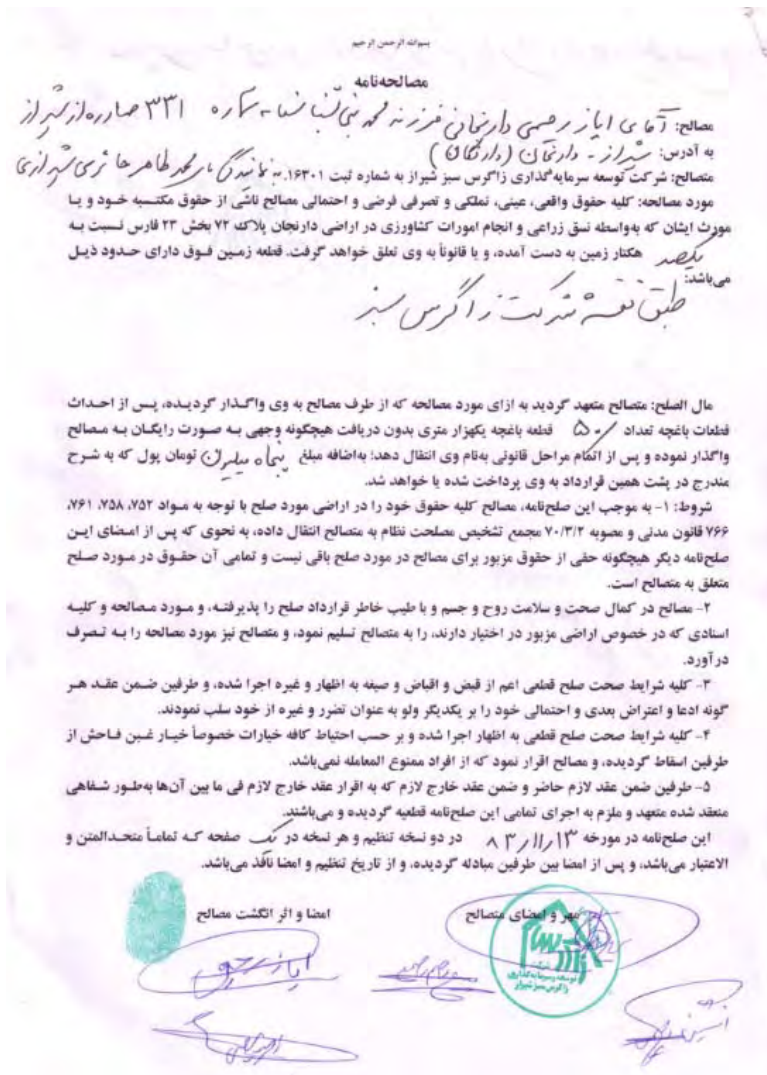 بسم‌الله الرحمن الرحیم
مصالحه‌نامه
مصالح: آقای ایاز رحیمی دارنجانی فرزند محمد نبی شناسنامه شماره ۳۳۱ صادره از شیراز
به آدرس: شیراز - دارنجان (دارنگان)
متصالح: شرکت توسعه سرمایه گذاری زاگرس سبز شیراز به شماره ثبت ۱۶۳۰۱. به نمایندگی محمد طاهر حائری شیرازی
مورد مصالحه: کلیه حقوق واقعی، عینی، تملکی و تصرفی فرضی و احتمالی مصالح ناشی از حقوق مکتسبه خـود و یـا
مورث ایشان که به‌واسطه نسق زراعی و انجام امورات کشاورزی در اراضی دارنجان پلاک ۷۲ بخش ۲۳ فارس نسبت به
یکصد هکتار زمین به دست آمده، و یا قانوناً به وی تعلق خواهد گرفت. قطعه زمـین فـوق دارای حـدود ذیـل
می‌باشد:
طبق نقشه شرکت زاگرس سبز
مال الصلح: متصالح متعهد گردید به ازای مورد مصالحه که از طرف مصالح به وی واگـذار گردیـده، پـس از احـداث
قطعات باغچه تعداد ۵۰ قطعه باغچه یکهزار متری بدون دریافت هیچگونه وجهی بـه صـورت رایگـان بـه مـصالح
واگذار نموده و پس از اتمام مراحل قانونی به‌نام وی انتقال دهد؛ به‌اضافه مبلغ پنجاه میلیون تومان پول که به شـرح
مندرج در پشت همین قرارداد به وی پرداخت شده یا خواهد شد.
شروط: ۱- به موجب این صلح‌نامه، مصالح کلیه حقوق خود را در اراضی مورد صلح با توجه به مـواد ۷۵۲، ۷۵۸، ۷۶۱،
۷۶۶ قانون مدنی و مصوبه ۷۰/۳/۲ مجمع تشخیص مصلحت نظام به متصالح انتقال داده، به نحوی که پس از امـضای ایـن
صلح‌نامه دیگر هیچگونه حقی از حقوق مزبور برای مصالح در مورد صلح باقی نیست و تمامی آن حقـوق در مـورد صـلح
متعلق به متصالح است.
۲- مصالح در کمال صحت و سلامت روح و جسم و با طیب خاطر قرارداد صلح را پذیرفتـه، و مـورد مـصالحه و کلیـه
اسنادی که در خصوص اراضی مزبور در اختیار دارند، را به متصالح تسلیم نمود، و متصالح نیز مورد مصالحه را بـه تـصرف
درآورد.
۳- کلیه شرایط صحت صلح قطعی اعم از قبض و اقباض و صیغه به اظهار و غیره اجرا شده، و طرفین ضـمن عقـد هـر
گونه ادعا و اعتراض بعدی و احتمالی خود را بر یکدیگر ولو به عنوان تضرر و غیره از خود سلب نمودند.
۴- کلیه شرایط صحت صلح قطعی به اظهار اجرا شده و بر حسب احتیاط کافه خیارات خصوصاً خیـار غـبن فـاحش از
طرفین اسقاط گردیده، و مصالح اقرار نمود که از افراد ممنوع المعامله نمی‌باشد.
۵- طرفین ضمن عقد لازم حاضر و ضمن عقد خارج لازم که به اقرار عقد خارج لازم فی ما بین آن‌ها به‌طـور شـفاهی
منعقد شده متعهد و ملزم به اجرای تمامی این صلح‌نامه قطعیه گردیده و می‌باشند.
این صلح‌نامه در مورخه ۸۳/۱۱/۱۳ در دو نسخه تنظیم و هر نسخه در یک صفحه کـه تمامـاً متحـدالمتن و
الاعتبار می‌باشد، و پس از امضا بین طرفین مبادله گردیده، و از تاریخ تنظیم و امضا نافذ می‌باشد.
مهر و امضای متصالح
امضا و اثر انگشت مصالح
شرکت
توسعه و سرمایه‌گذاری
زاگرس سبز شیراز